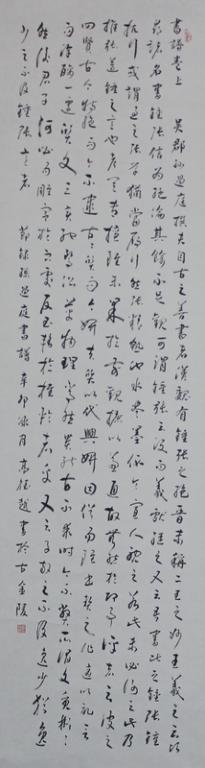 書譜卷上 吳郡孫過庭撰 夫自古之善書者漢魏有鍾張之絕晉末稱二王之妙王羲之云頃
尋諸名書鍾張信為絕倫其餘不足觀可謂鍾張云沒而羲獻繼之又云吾書比之鍾張鍾
抗行或謂過之張草猶當鴈行然張精熟池水盡墨假令寡人耽之若此未必謝之此乃
推張邁鍾之意也考其專擅雖未果於前規摭以兼通故無慚於即事評者云彼之
四賢古今特絕而今不逮古古質而今妍夫質以代興妍因俗易雖書契之作適以記言
而淳醨一遷質文三變馳騖沿革物理常然貴能古不乖時今不同弊所謂文質彬彬
然後君子何必易雕宮於穴處反玉輅於椎輪者乎又云子敬之不及逸少猶逸
少之不及鍾張 節錄孫過庭書譜 辛卯冰月 高越書於古金陵